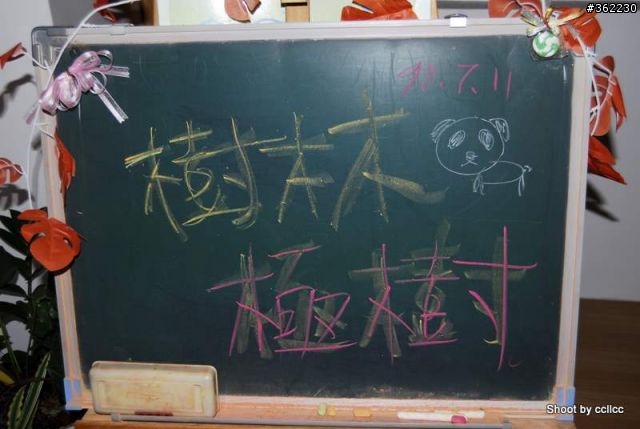 #362230
7.11
樹林
極樹
Shoot by ccllcc